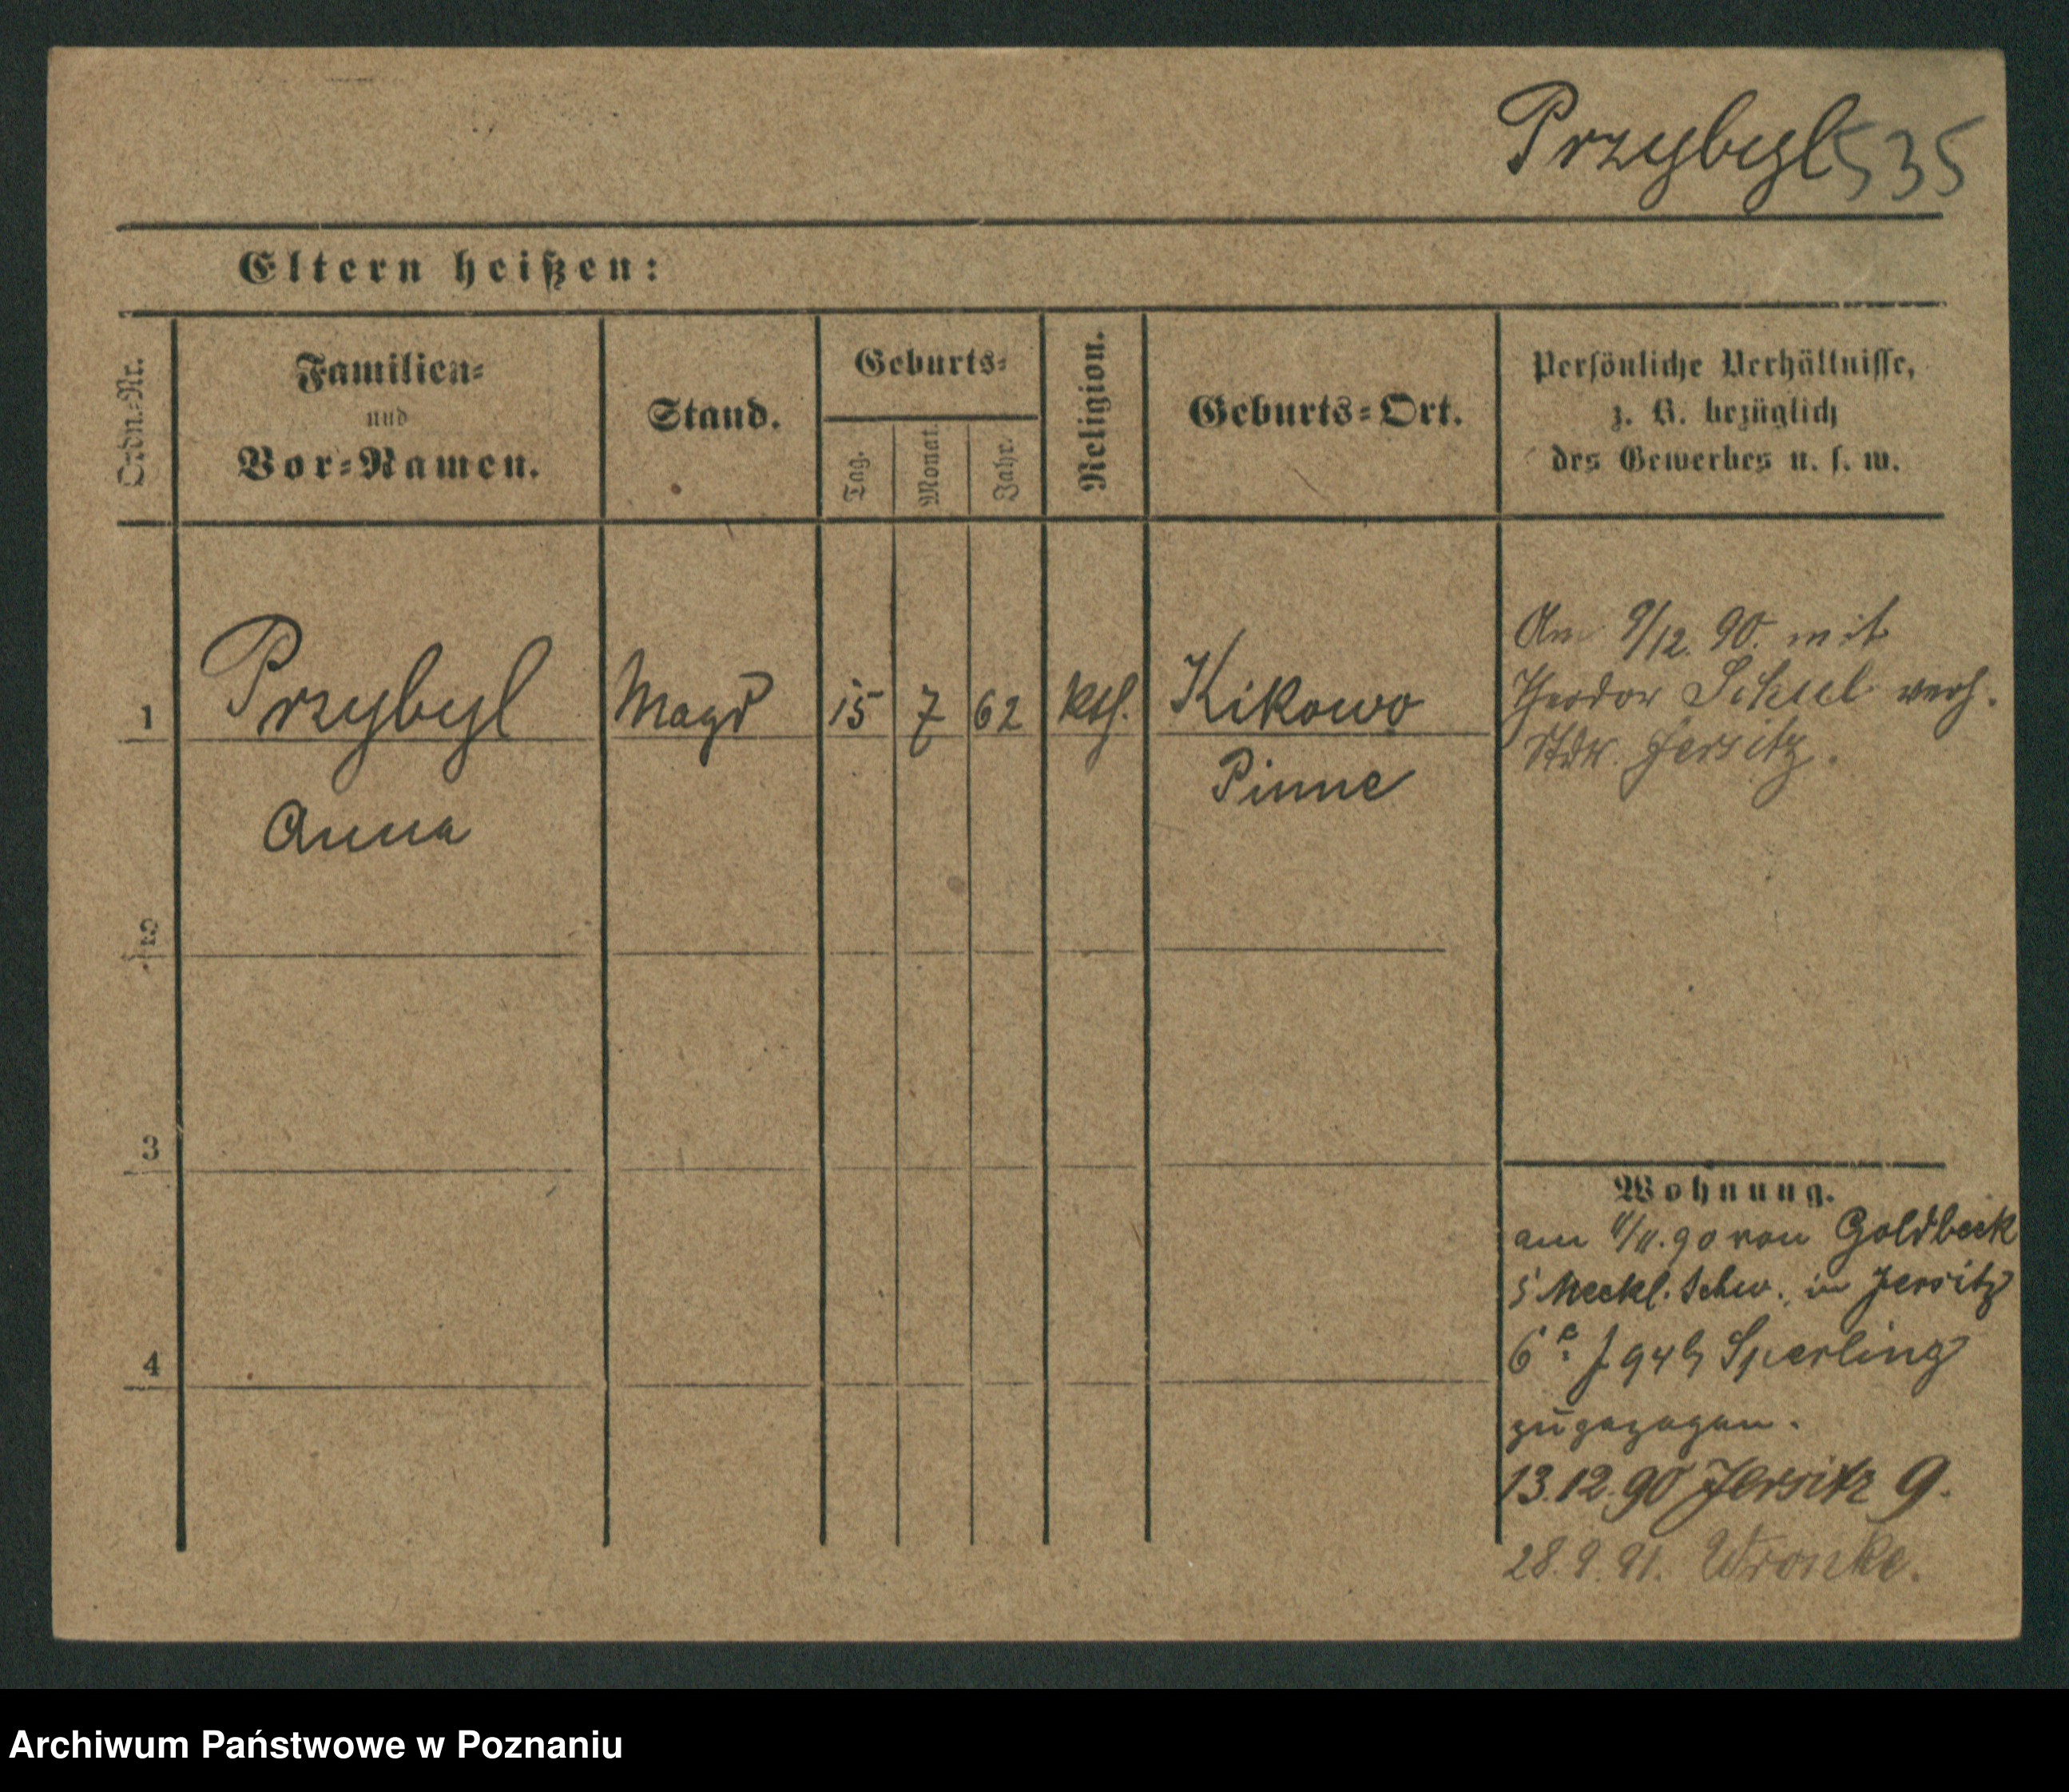 Przybyl 535
Eltern heißen:
Ordn.-Nr.
Familien-
und
Vor-Namen.
Stand.
Geburts-
Tag.
Monat.
Jahr.
Religion.
Geburts-Ort.
Persönliche Verhältnisse,
z. B. bezüglich
des Gewerbes u. s. w.
1 Przybyl Magd 15 7 62 kth. Kikowo
Pinne
Anna
Am 9/12. 90. mit
Theodor verh.
Jersitz.
2
3
4
Wohnung.
am 11/11. 90 von Goldbeck
Meckl. Schw. in Jersitz
Sperling
zugezogen.
13.12.90 Jersitz 9.
28.9.91. Wronke.
Archiwum Państwowe w Poznaniu